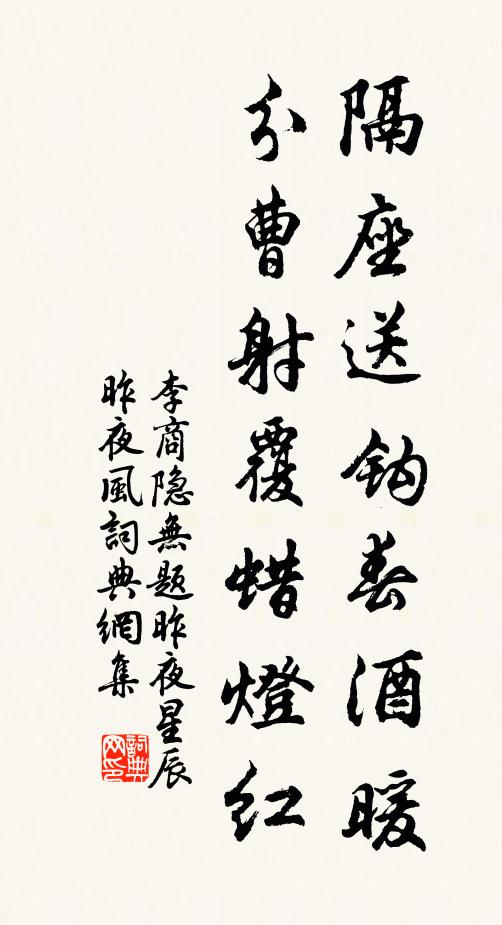 隔座送鈎春酒暖
分曹射覆蜡燈紅
李商隐無題昨夜星辰
昨夜風詞典網集
詞典
网印